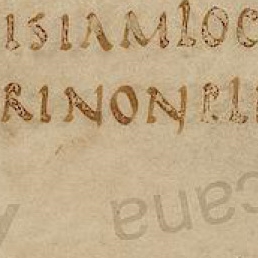 ISIAMLOC
RINONPLE